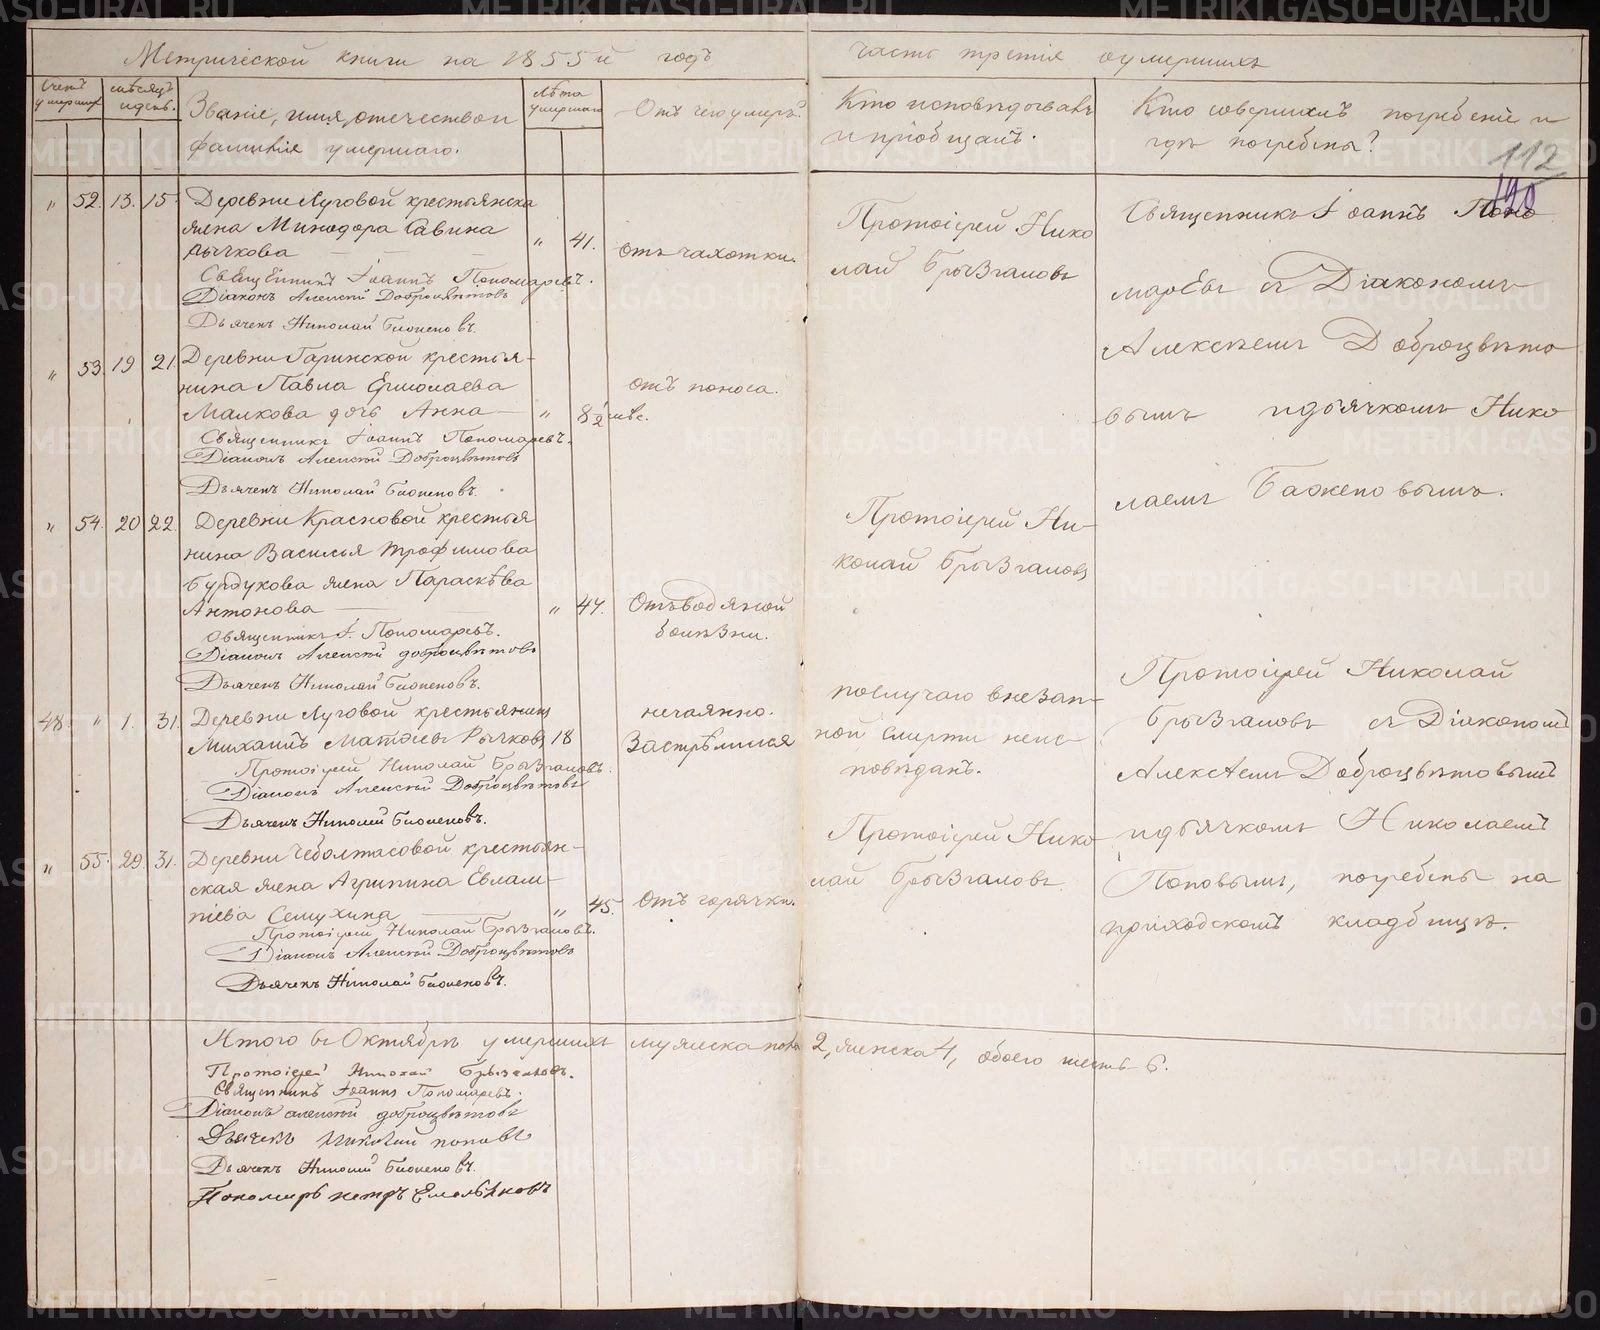 Метрической книги на 1855й годъ
часть третія оумершихъ
Счетъ умершихъ
мѣсяцъ и день.
Званіе, имя, отечество и
фамилія умершаго.
Лѣта умершаго
Отъ чего умеръ.
Кто исповѣдывалъ
и пріобщалъ.
Кто совершилъ погребеніе и
гдѣ погребены?
112
120
" 52. 13. 15. Деревни Луговой крестьянска
жена Минодора Савина
Рычкова " 41. отъ чахотки.
Священникъ Іоаннъ Пономаревъ.
Діаконъ Алексѣй Доброцвѣтовъ
Дьячекъ Николай Баженовъ.
Протоіерей Нико
лай Брызгаловъ
" 53. 19 21. Деревни Гаринской крестья-
нина Павла Ермолаева
Малкова дочь Анна " 8 1/2 мѣс. отъ поноса.
Священникъ Іоаннъ Пономаревъ.
Діаконъ Алексѣй Доброцвѣтовъ
Дьячекъ Николай Баженовъ.
" 54. 20 22. Деревни Красновой крестья
нина Василья Трофимова
Бурдукова жена Параскѣва
Антонова " 47. Отъ водяной
болѣзни.
Священникъ І. Пономаревъ.
Діаконъ Алексѣй Доброцвѣтовъ
Дьячекъ Николай Баженовъ.
Протоіерей Ни-
колай Брызгаловъ
Священникъ Іоаннъ Поно
маревъ съ Діакономъ
Алексѣемъ Доброцвѣто
вымъ и дьячкомъ Нико
лаемъ Баженовымъ.
48. " 1. 31. Деревни Луговой крестьянинъ
Михаилъ Матѳіевъ Рычковъ 18
нечаянно.
Застрѣлился
Протоіерей Николай Брызгаловъ.
Діаконъ Алексѣй Доброцвѣтовъ
Дьячекъ Николай Баженовъ.
по случаю внезап-
ной смерти неис-
повѣданъ.
" 55. 29. 31. Деревни Чеболтасовой крестьян-
ская жена Агрипина Евлам-
піева Семухина " 45. Отъ горячки.
Протоіерей Николай Брызгаловъ.
Діаконъ Алексѣй Доброцвѣтовъ
Дьячекъ Николай Баженовъ.
Протоіерей Нико
лай Брызгаловъ.
Протоіерей Николай
Брызгаловъ съ Діакономъ
Алексѣемъ Доброцвѣтовымъ
и дьячкомъ Николаемъ
Поповымъ, погребены на
приходскомъ кладбищѣ.
Итого въ Октябрѣ умершихъ мужеска пола 2, женска 4, обоего шесть 6.
Протоіерей Николай Брызгаловъ.
Священникъ Іоаннъ Пономаревъ.
Діаконъ алексѣй доброцвѣтовъ
Дьячекъ Николай поповъ
Дьячекъ Николай Баженовъ.
Пономарь петръ Емельяновъ
METRIKI.GASO-URAL.RU